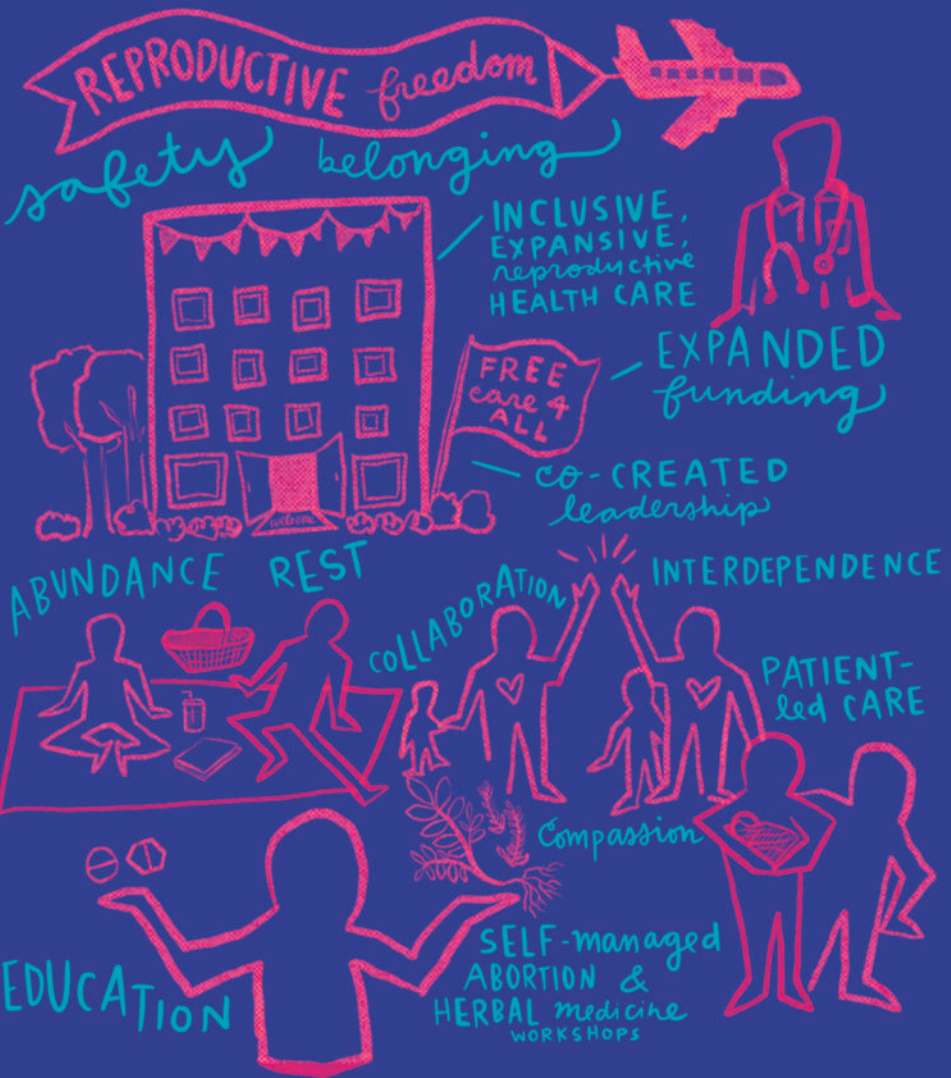 REPRODUCTIVE freedom
safety belonging
INCLUSIVE,
EXPANSIVE,
reproductive
HEALTH CARE
EXPANDED
funding
FREE
care 4
ALL
CO-CREATED
leadership
welcome
ABUNDANCE REST
COLLABORATION
INTERDEPENDENCE
PATIENT-
led CARE
Compassion
EDUCATION
SELF-managed
ABORTION &
HERBAL medicine
WORKSHOPS